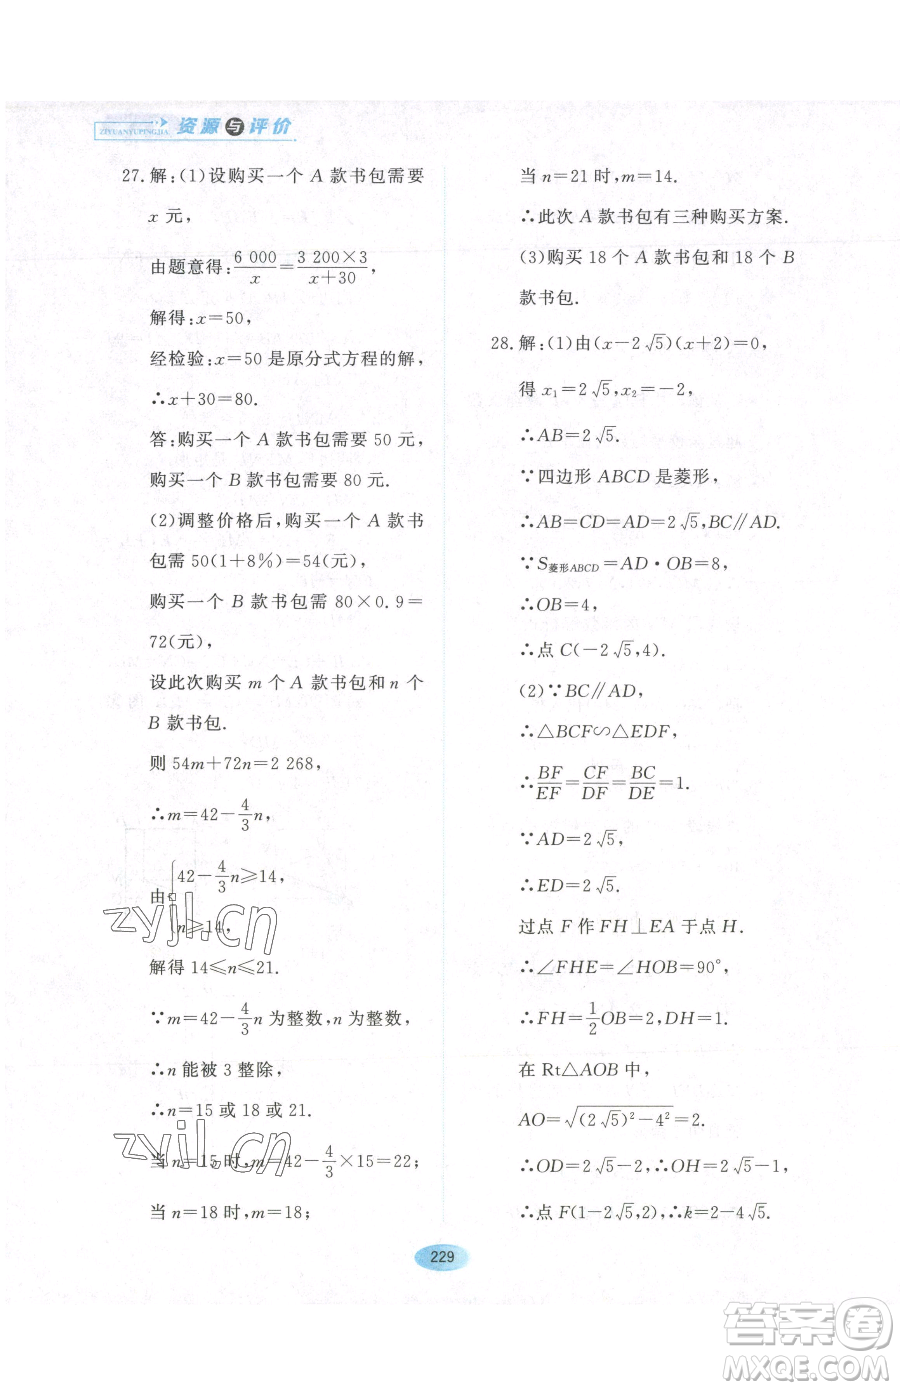 ZIYUANYUPINGJIA 资源与评价
27. 解:(1)设购买一个 A 款书包需要
x 元,
由题意得:6 000/x=3 200×3/x+30,
解得:x=50,
经检验:x=50 是原分式方程的解,
∴x+30=80.
答:购买一个 A 款书包需要 50 元,
购买一个 B 款书包需要 80 元.
(2)调整价格后,购买一个 A 款书
包需 50(1+8%)=54(元),
购买一个 B 款书包需 80×0.9=
72(元),
设此次购买 m 个 A 款书包和 n 个
B 款书包.
则 54m+72n=2 268,
∴m=42-4/3n,
由{42-4/3n≥14,
n≥14,
解得 14≤n≤21.
∵m=42-4/3n 为整数,n 为整数,
∴n 能被 3 整除,
∴n=15 或 18 或 21.
当 n=15 时,m=42-4/3×15=22;
当 n=18 时,m=18;
当 n=21 时,m=14.
∴此次 A 款书包有三种购买方案.
(3)购买 18 个 A 款书包和 18 个 B
款书包.
28. 解:(1)由(x-2√5)(x+2)=0,
得 x₁=2√5,x₂=-2,
∴AB=2√5.
∵四边形 ABCD 是菱形,
∴AB=CD=AD=2√5,BC∥AD.
∵S菱形ABCD=AD·OB=8,
∴OB=4,
∴点 C(-2√5,4).
(2)∵BC∥AD,
∴△BCF∽△EDF,
∴BF/EF=CF/DF=BC/DE=1.
∵AD=2√5,
∴ED=2√5.
过点 F 作 FH⊥EA 于点 H.
∴∠FHE=∠HOB=90°,
∴FH=1/2OB=2,DH=1.
在 Rt△AOB 中,
AO=√((2√5)²-4²)=2.
∴OD=2√5-2,∴OH=2√5-1.
∴点 F(1-2√5,2),∴k=2-4√5.
229
zyjl.cn
zyjl.cn
答案卷
MXQE.COM